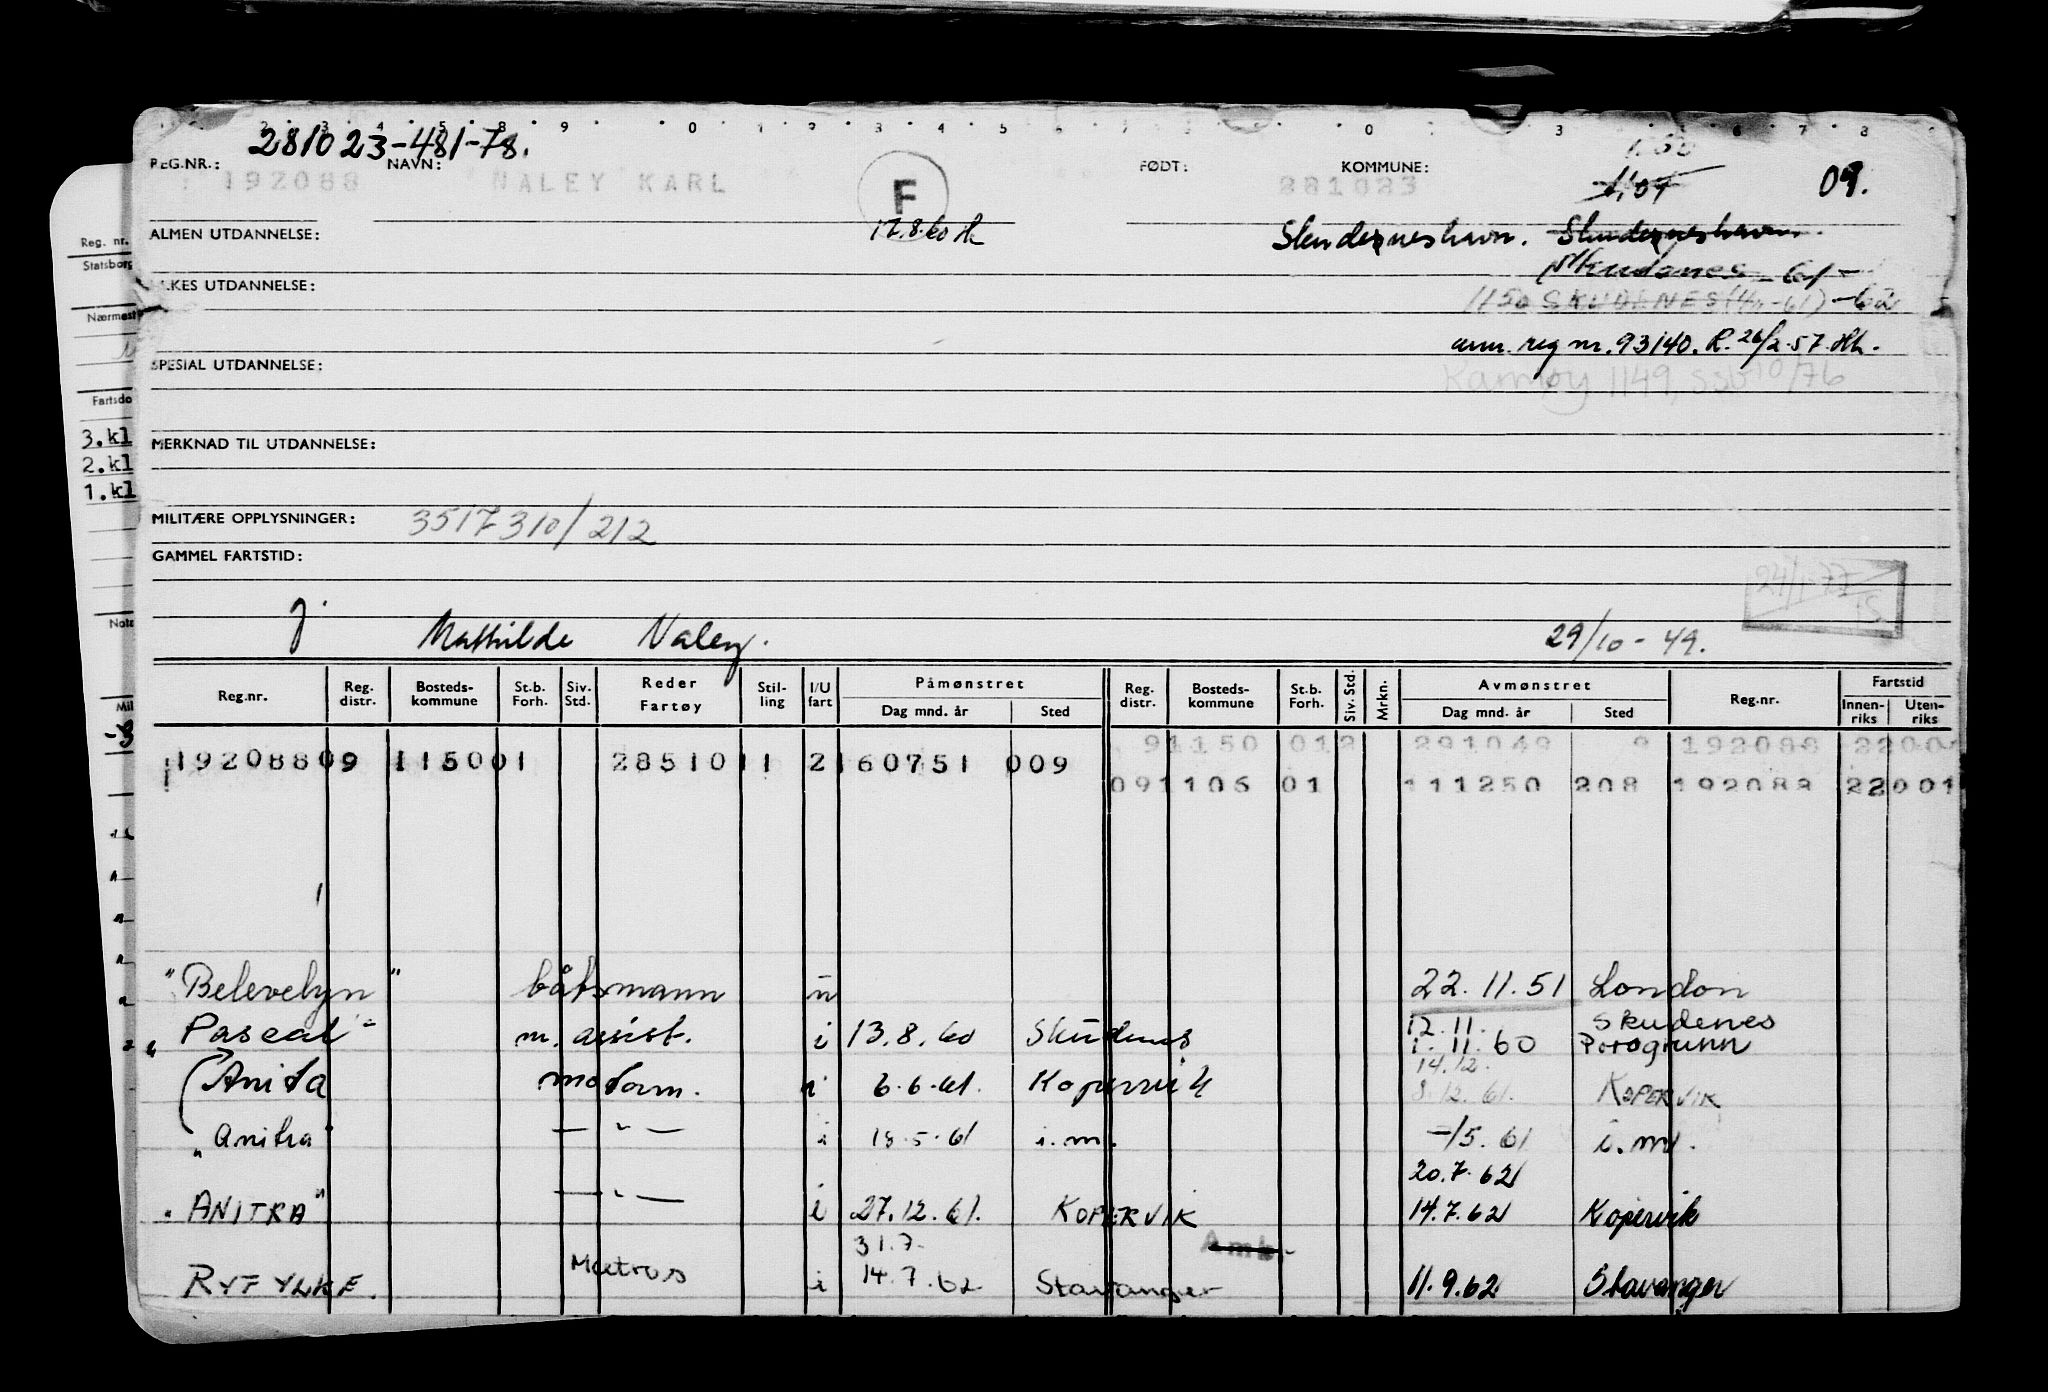 281023-481-78.
REG.NR.: NAVN: FØDT: KOMMUNE:
192088 NALEY KARL F 281023 1107 09.
ALMEN UTDANNELSE: 17.8.60 Skudesneshavn. Skudesneshavn.
YRKES UTDANNELSE: Skudenes - 61 -
1150 SKUDENES (4/2-61) - 62
ann. reg nr. 93140. R. 26/2.57. Hk.
SPESIAL UTDANNELSE: Karmøy 1149, SSB 10/76
MERKNAD TIL UTDANNELSE:
MILITÆRE OPPLYSNINGER: 3517310/212
GAMMEL FARTSTID:
24/1-77
j. Mathilde Naley. 29/10-49.
Reg.nr. Reg. distr. Bosteds- kommune St.b. Forh. Siv. Std. Reder Fartøy Stil- ling I/U fart Påmønstret Dag mnd. år Sted Reg. distr. Bosteds- kommune St.b. Forh. Siv. Std. Mrkn. Avmønstret Dag mnd. år Sted Reg.nr. Fartstid Innen- riks Uten- riks
91150 012 291049 9 192088 22001
19208809 115001 2851011 2160751 009
091106 01 111250 208 192088 22001
"Belevelyn" båtsmann u 22.11.51 London
"Pascal" m. assist. i 13.8.60 Skudenes 12.11. Skudenes
1.11.60 Porsgrunn
Anita motorm. i 6.6.61. Kopervik 14.12.
8.12.61. KOPERVIK
"Anitra" — " — i 18.5.61 i.m. -/5.61 i.m.
20.7.62
"ANITRA" — " — i 27.12.61. KOPERVIK 14.7.62 Kopervik
31.7.
RYFYLKE. Matros i 14.7.62 Stavanger 11.9.62 Stavanger
Reg. nr.
Statsborg
Nærmest
Fartsdo
3.kl
2.kl
1.kl
Nota
Mil